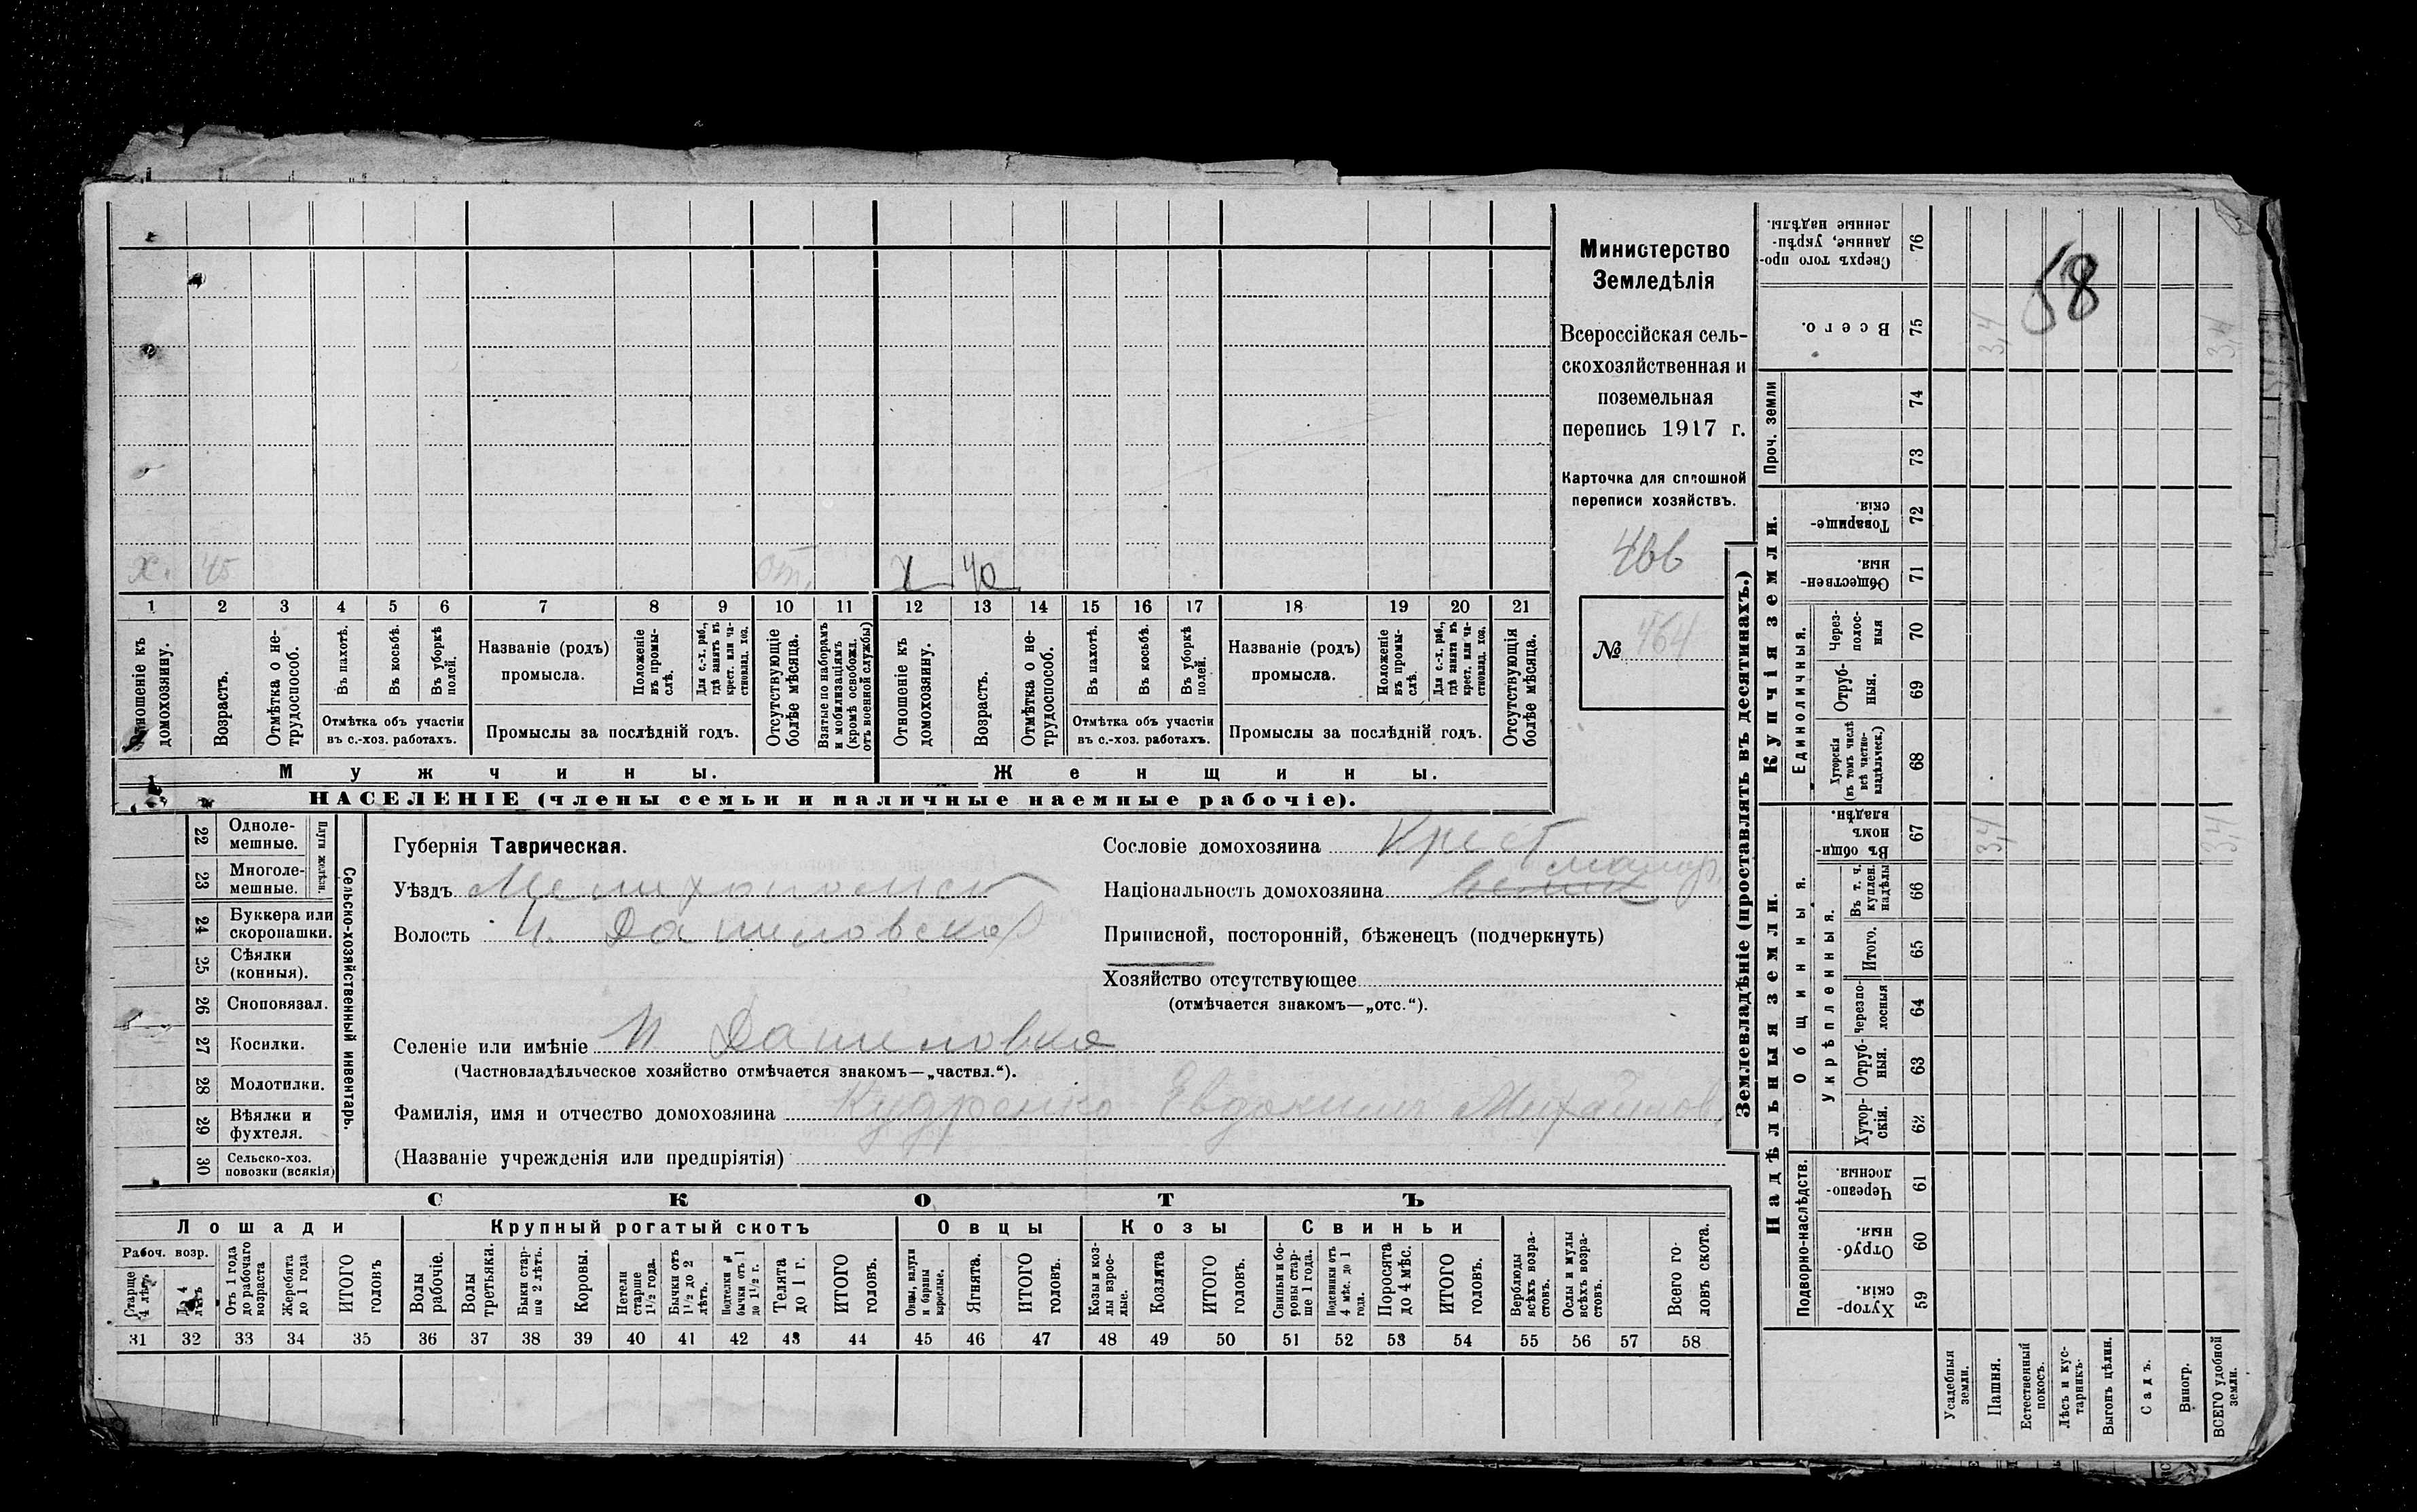 Министерство
Земледѣлія
Всероссійская сель-
скохозяйственная и
поземельная
перепись 1917 г.
Карточка для сплошной
переписи хозяйствъ.
466
№ 464
58
х. 45 от. х 40
1 2 3 4 5 6 7 8 9 10 11 12 13 14 15 16 17 18 19 20 21
Отношеніе къ домохозяину.
Возрастъ.
Отмѣтка о не-трудоспособ.
Въ пахотѣ.
Въ косьбѣ.
Въ уборкѣ полей.
Отмѣтка объ участіи
въ с.-хоз. работахъ.
Названіе (родъ)
промысла.
Положеніе въ промы-слѣ.
Для с.-х. раб., гдѣ занятъ въ крест. или ча-стновлад. хоз.
Промыслы за послѣдній годъ.
Отсутствующіе болѣе мѣсяца.
Взятые по наборамъ и мобилизаціямъ (кромѣ освобожд. отъ военной службы)
Отношеніе къ домохозяину.
Возрастъ.
Отмѣтка о не-трудоспособ.
Въ пахотѣ.
Въ косьбѣ.
Въ уборкѣ полей.
Отмѣтка объ участіи
въ с.-хоз. работахъ.
Названіе (родъ)
промысла.
Положеніе въ промы-слѣ.
Для с.-х. раб., гдѣ занята въ крест. или ча-стновлад. хоз.
Промыслы за послѣдній годъ.
Отсутствующія болѣе мѣсяца.
Мужчины. Женщины.
НАСЕЛЕНІЕ (члены семьи и наличные наемные рабочіе).
22 Одноле-мешные.
23 Многоле-мешные.
Плуги желѣзн.
24 Буккера или скоропашки.
25 Сѣялки (конныя).
26 Сноповязал.
27 Косилки.
28 Молотилки.
29 Вѣялки и фухтеля.
30 Сельско-хоз. повозки (всякія)
Сельско-хозяйственный инвентарь.
Губернія Таврическая.
Уѣздъ Мелитопольск
Волость Н. Даниловская
Селеніе или имѣніе Н. Даниловка
(Частновладѣльческое хозяйство отмѣчается знакомъ—„частвл.“).
Фамилія, имя и отчество домохозяина Кудренко Евдоким Михайлов
(Названіе учрежденія или предпріятія)
Сословіе домохозяина Крест
Національность домохозяина малор.
Приписной, посторонній, бѣженецъ (подчеркнуть)
Хозяйство отсутствующее
(отмѣчается знакомъ—„отс.“).
СКОТЪ
Лошади Крупный рогатый скотъ Овцы Козы Свиньи
Рабоч. возр.
Старше 4 лѣтъ
До 4 лѣтъ
Отъ 1 года до рабочаго возраста
Жеребята до 1 года
ИТОГО головъ
Волы рабочіе.
Волы третьяки.
Быки стар-ше 2 лѣтъ.
Коровы.
Нетели старше 1½ года.
Бычки отъ 1½ до 2 лѣтъ.
Подтелки и бычки отъ 1 до 1½ г.
Телята до 1 г.
ИТОГО головъ.
Овцы, валухи и бараны взрослые.
Ягнята.
ИТОГО головъ.
Козы и коз-лы взрос-лые.
Козлята
ИТОГО головъ.
Свиньи и бо-ровы стар-ше 1 года.
Подсвинки отъ 4 мѣс. до 1 года.
Поросята до 4 мѣс.
ИТОГО головъ.
Верблюды всѣхъ возра-стовъ.
Ослы и мулы всѣхъ возра-стовъ.
Всего го-ловъ скота.
31 32 33 34 35 36 37 38 39 40 41 42 43 44 45 46 47 48 49 50 51 52 53 54 55 56 57 58
Землевладѣніе (проставлять въ десятинахъ.)
Надѣльныя земли. Купчія земли. Проч. земли
Подворно-наслѣдств.
Общинныя.
Укрѣпленныя.
Единоличныя.
Сверхъ того про-данные, укрѣп-ленные надѣлы. 76
Всего. 75 3,4 3,4
74
73
Товарище-скія 72
Обществен-ныя. 71
Через-полос-ныя 70
Отруб-ныя. 69
Хуторскія (въ томъ числѣ всѣ частно-владѣльческ.) 68
Въ общин-номъ владѣн. 67 3,4 3,4
Въ т. ч. куплен. надѣлы 66
Итого. 65
Черезпо-лосныя 64
Отруб-ныя. 63
Хутор-скія. 62
Черезпо-лосныя. 61
Отруб-ныя. 60
Хутор-скія. 59
Усадебныя земли.
Пашня.
Естественный покосъ.
Лѣсъ и кус-тарникъ.
Выгонъ цѣлин.
Садъ.
Виногр.
ВСЕГО удобной земли.